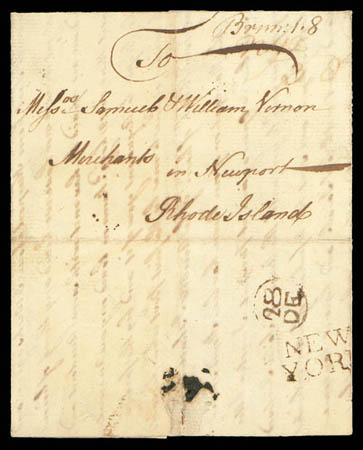 To
Messrs Samuel & William Vernon
Merchants
in Newport
Rhode Island
28
DE
NEW
YORK